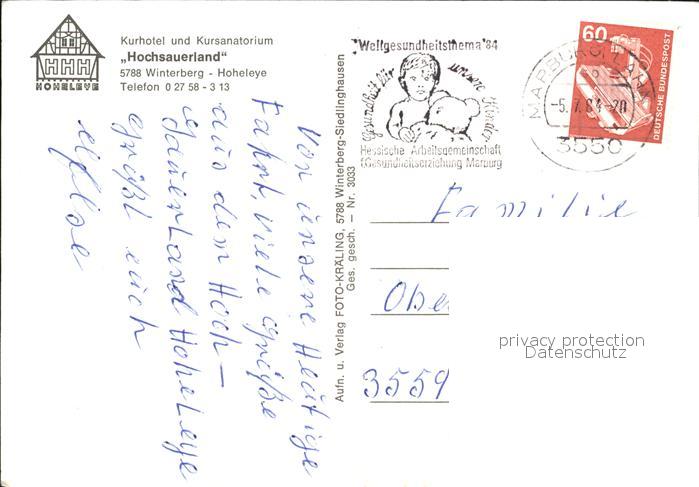 HHH
HOHELEYE
Kurhotel und Kursanatorium
„Hochsauerland"
5788 Winterberg - Hoheleye
Telefon 0 27 58 - 3 13
Von unsere Heutige
Fahrt, viele Grüße
aus dem Hoch-
Sauerland Hoheleye
grüßt euch
Aufn. u. Verlag FOTO-KRÄLING, 5788 Winterberg-Siedlinghausen
Ges. gesch. — Nr. 3033
"Weltgesundheitsthema '84
Gesundheit für unsere Kinder
Hessische Arbeitsgemeinschaft
f.Gesundheitserziehung Marburg
MARBURG, LAHN
-5.7.84-20
3550
60
DEUTSCHE BUNDESPOST
Familie
Obe
3559
privacy protection
Datenschutz